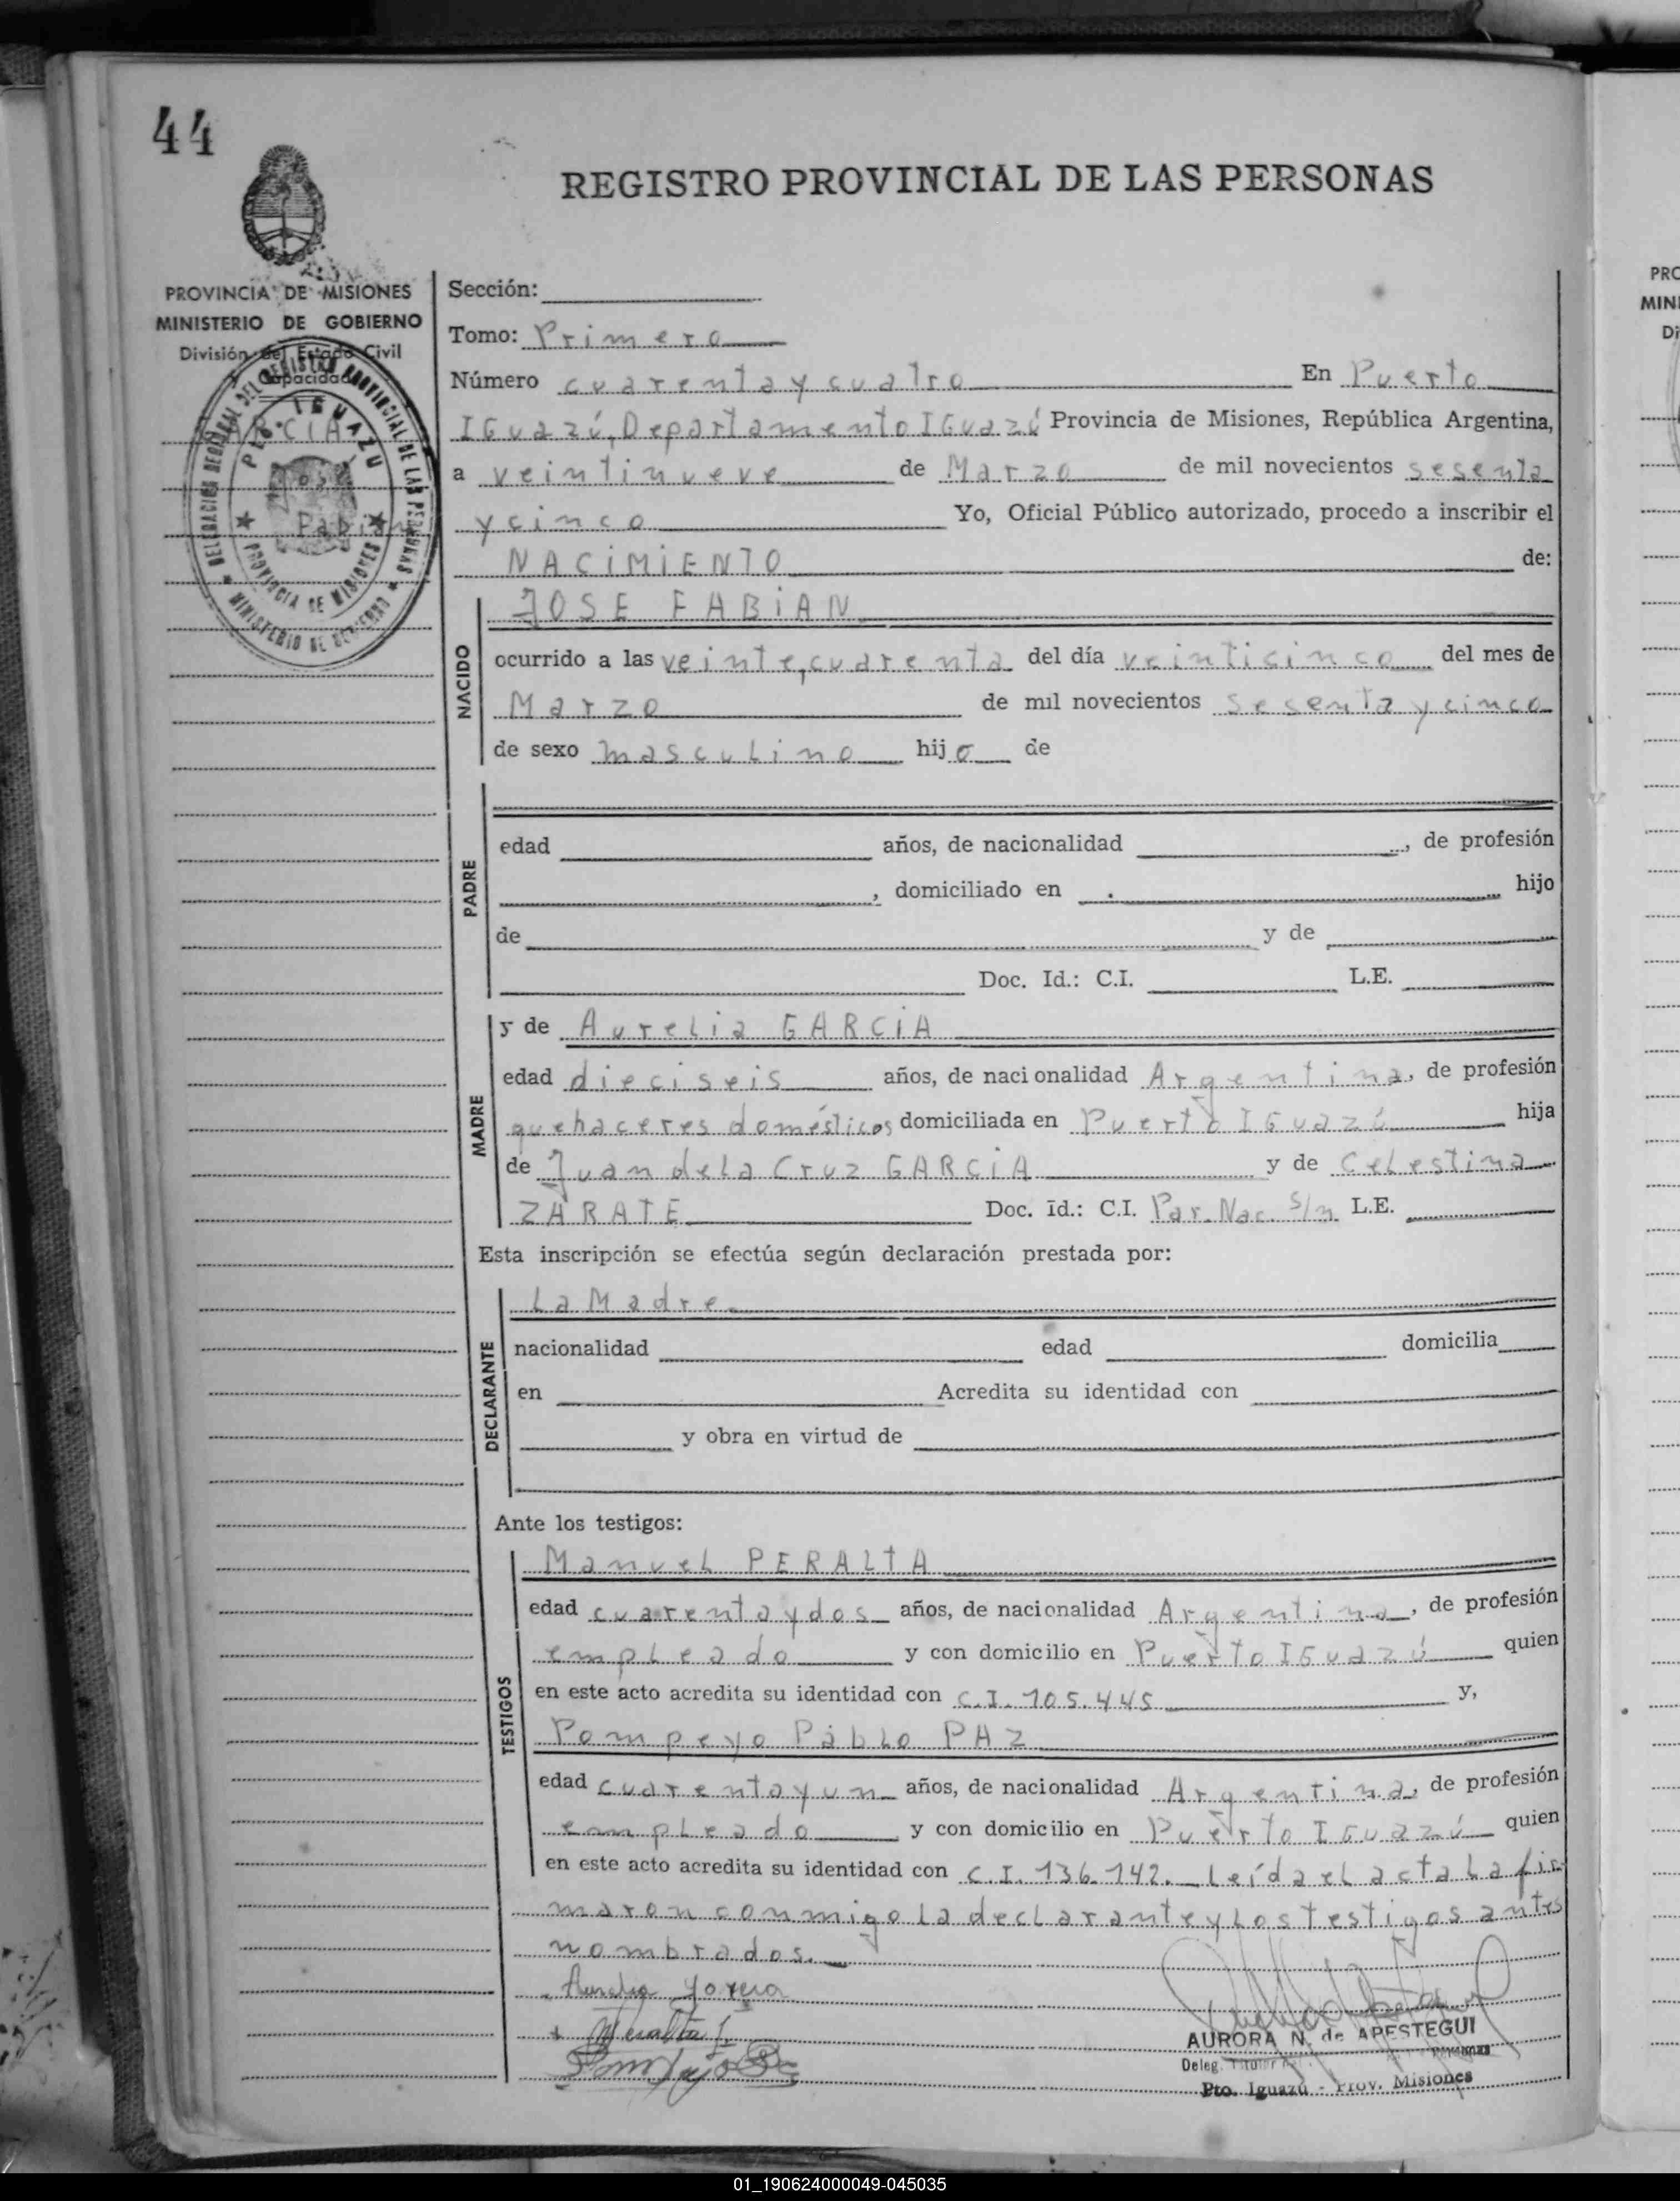 44
REGISTRO PROVINCIAL DE LAS PERSONAS
PROVINCIA DE MISIONES
MINISTERIO DE GOBIERNO
División del Estado Civil
Capacidad
GARCIA
José
Fabián
DELEGACION REGIONAL DEL REGISTRO PROVINCIAL DE LAS PERSONAS
PTO. IGUAZU
PROVINCIA DE MISIONES
MINISTERIO DE GOBIERNO
Sección:
Tomo: Primero
Número cuarenta y cuatro En Puerto
IGuazú, Departamento IGuazú Provincia de Misiones, República Argentina,
a veintinueve de Marzo de mil novecientos sesenta
y cinco Yo, Oficial Público autorizado, procedo a inscribir el
NACIMIENTO de:
NACIDO
JOSE FABIAN
ocurrido a las veinte, cuarenta del día veinticinco del mes de
Marzo de mil novecientos sesenta y cinco
de sexo masculino hijo de
PADRE
edad años, de nacionalidad , de profesión
, domiciliado en hijo
de y de
Doc. Id.: C.I. L.E.
MADRE
y de Aurelia GARCIA
edad dieciseis años, de nacionalidad Argentina, de profesión
quehaceres domésticos domiciliada en Puerto IGuazú hija
de Juan de la Cruz GARCIA y de Celestina
ZÁRATE Doc. Id.: C.I. Par. Nac. s/n L.E.
Esta inscripción se efectúa según declaración prestada por:
DECLARANTE
La Madre
nacionalidad edad domicilia
en Acredita su identidad con
y obra en virtud de
Ante los testigos:
TESTIGOS
Manuel PERALTA
edad cuarenta y dos años, de nacionalidad Argentina, de profesión
empleado y con domicilio en Puerto IGuazú quien
en este acto acredita su identidad con C.I. 105.445 y,
Pompeyo Pablo PAZ
edad cuarenta y un años, de nacionalidad Argentina, de profesión
empleado y con domicilio en Puerto IGuazú quien
en este acto acredita su identidad con C.I. 136.142. Leída el acta la fir
maron conmigo la declarante y los testigos antes
nombrados.
AURORA N. de APESTEGUI
Deleg. Titular
Pto. Iguazú - Prov. Misiones
PRO
MIN
Di
01_190624000049-045035